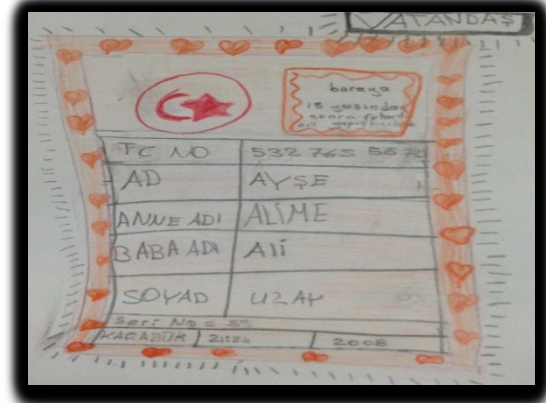 VATANDAŞ
buraya
15 yaşından
sonra fotoğ
TC NO 532 765 56 72
AD AYŞE
ANNE ADI ALİME
BABA ADI Ali
SOYAD UZAY
Seri No = 85
KARABÜK 21:24 2008